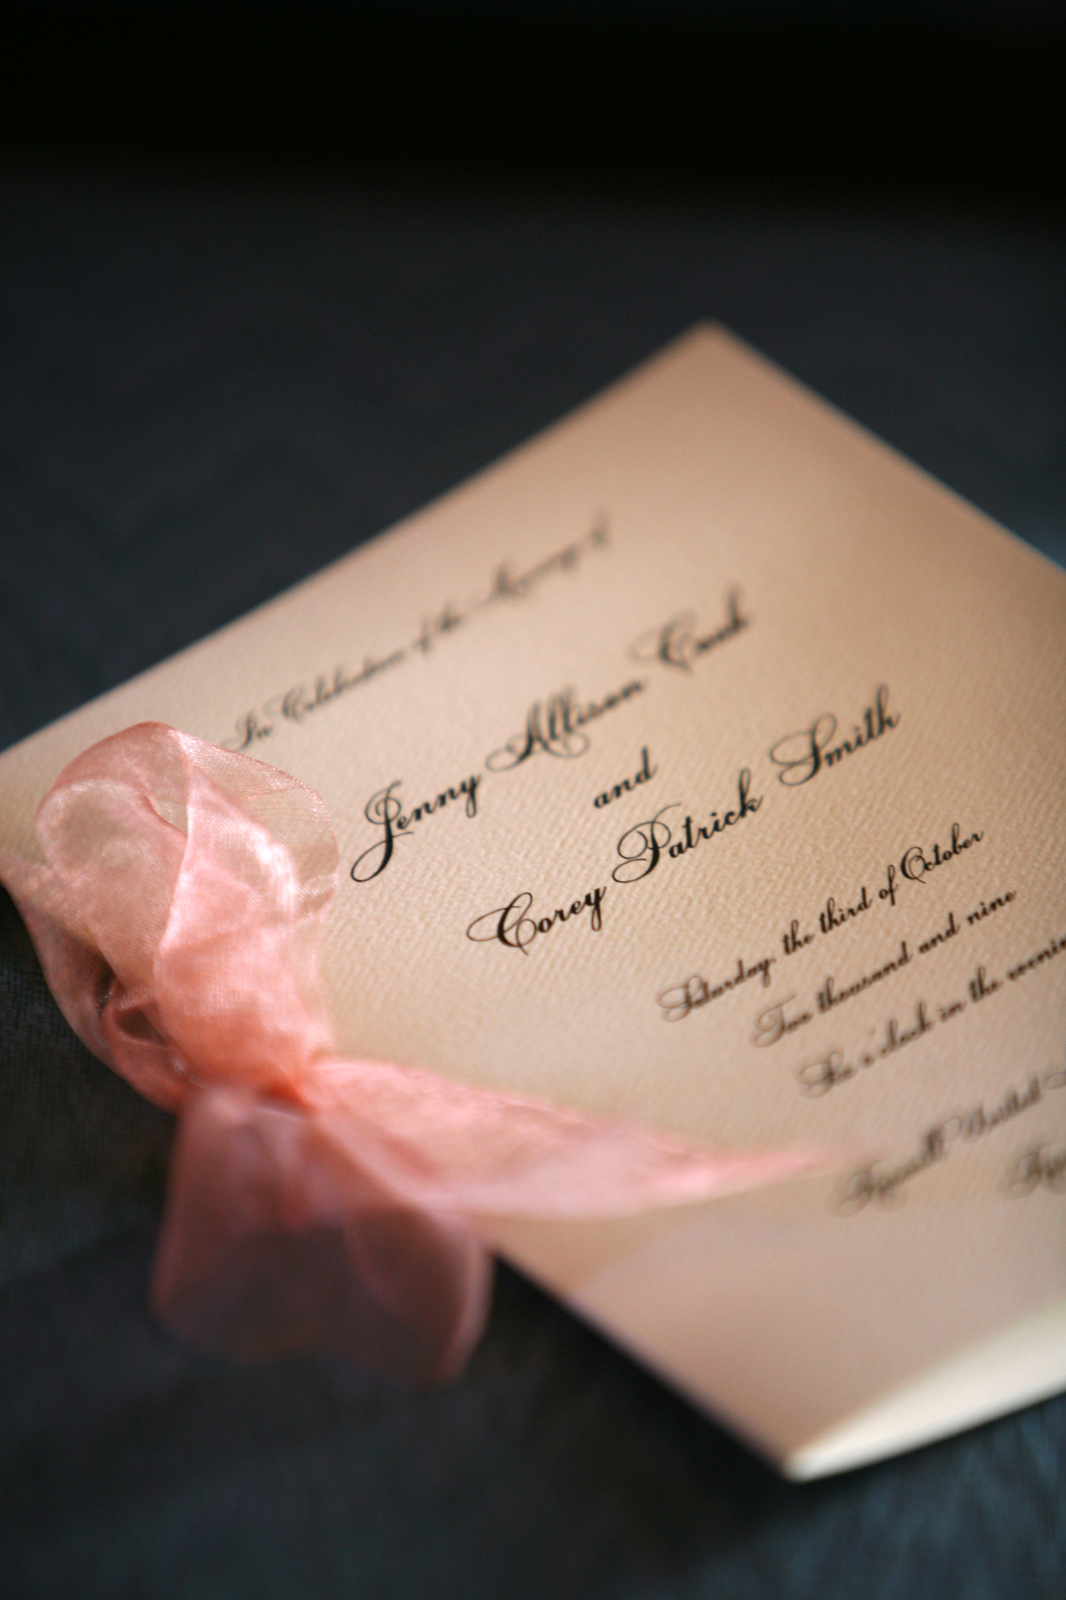 In Celebration of the Marriage of
Jenny Allison
and
Corey Patrick Smith
Saturday, the third of October
Two thousand and nine
Six o'clock in the evenin